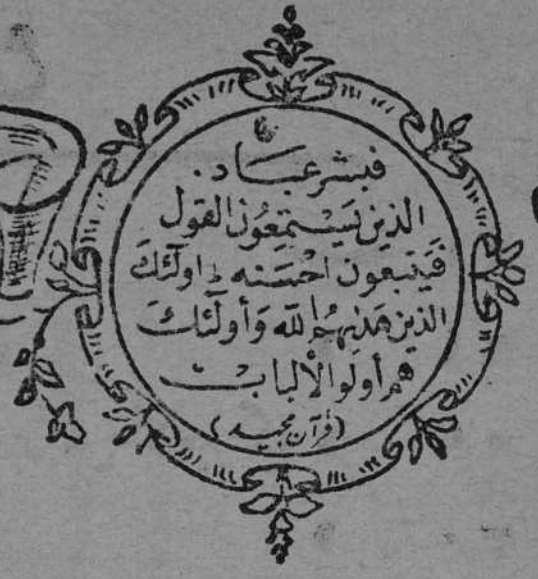 فبشر عباد.
الذين يستمعون القول
فيتبعون احسنه ط اولئك
الذين هديهم الله وأولئك
هم أولوا الألباب
(قرآن مجيد)